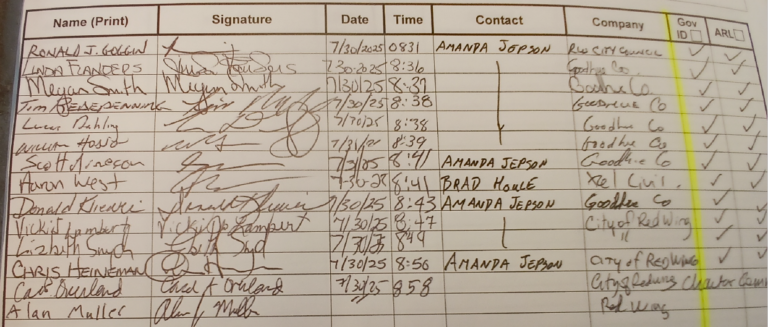 Name (Print) Signature Date Time Contact Company Gov ID ARL
RONALD J. GOGGIN 7/30/2025 0831 AMANDA JEPSON RW CITY COUNCIL
LINDA FLANDERS 7-30-2025 8:36 Goodhue Co.
Megan Smith Megan Smith 7/30/25 8:37 Goodhue Co.
TIM 7/30/25 8:38 GOODHUE CO
Lucas Dahling 7/30/25 8:38 Goodhue Co
William 8:39 Goodhue Co
Scott Arneson 7/31/25 8:41 AMANDA JEPSON Goodhue Co
Aaron West 7-30-25 8:41 BRAD Xcel Civil.
Donald 7/30/25 8:43 AMANDA JEPSON Goodhue Co
Vicki Lambert Vicki Jo Lambert 7/30/25 8:47 City of Red Wing
Lizbeth 7/30/25 849 "
CHRIS HEINEMAN 7/30/25 8:56 AMANDA JEPSON CITY OF RED WING
Overland 7/30/25 858 City of Redwing Charter Comm
Alan Muller Alan Muller Red Wing